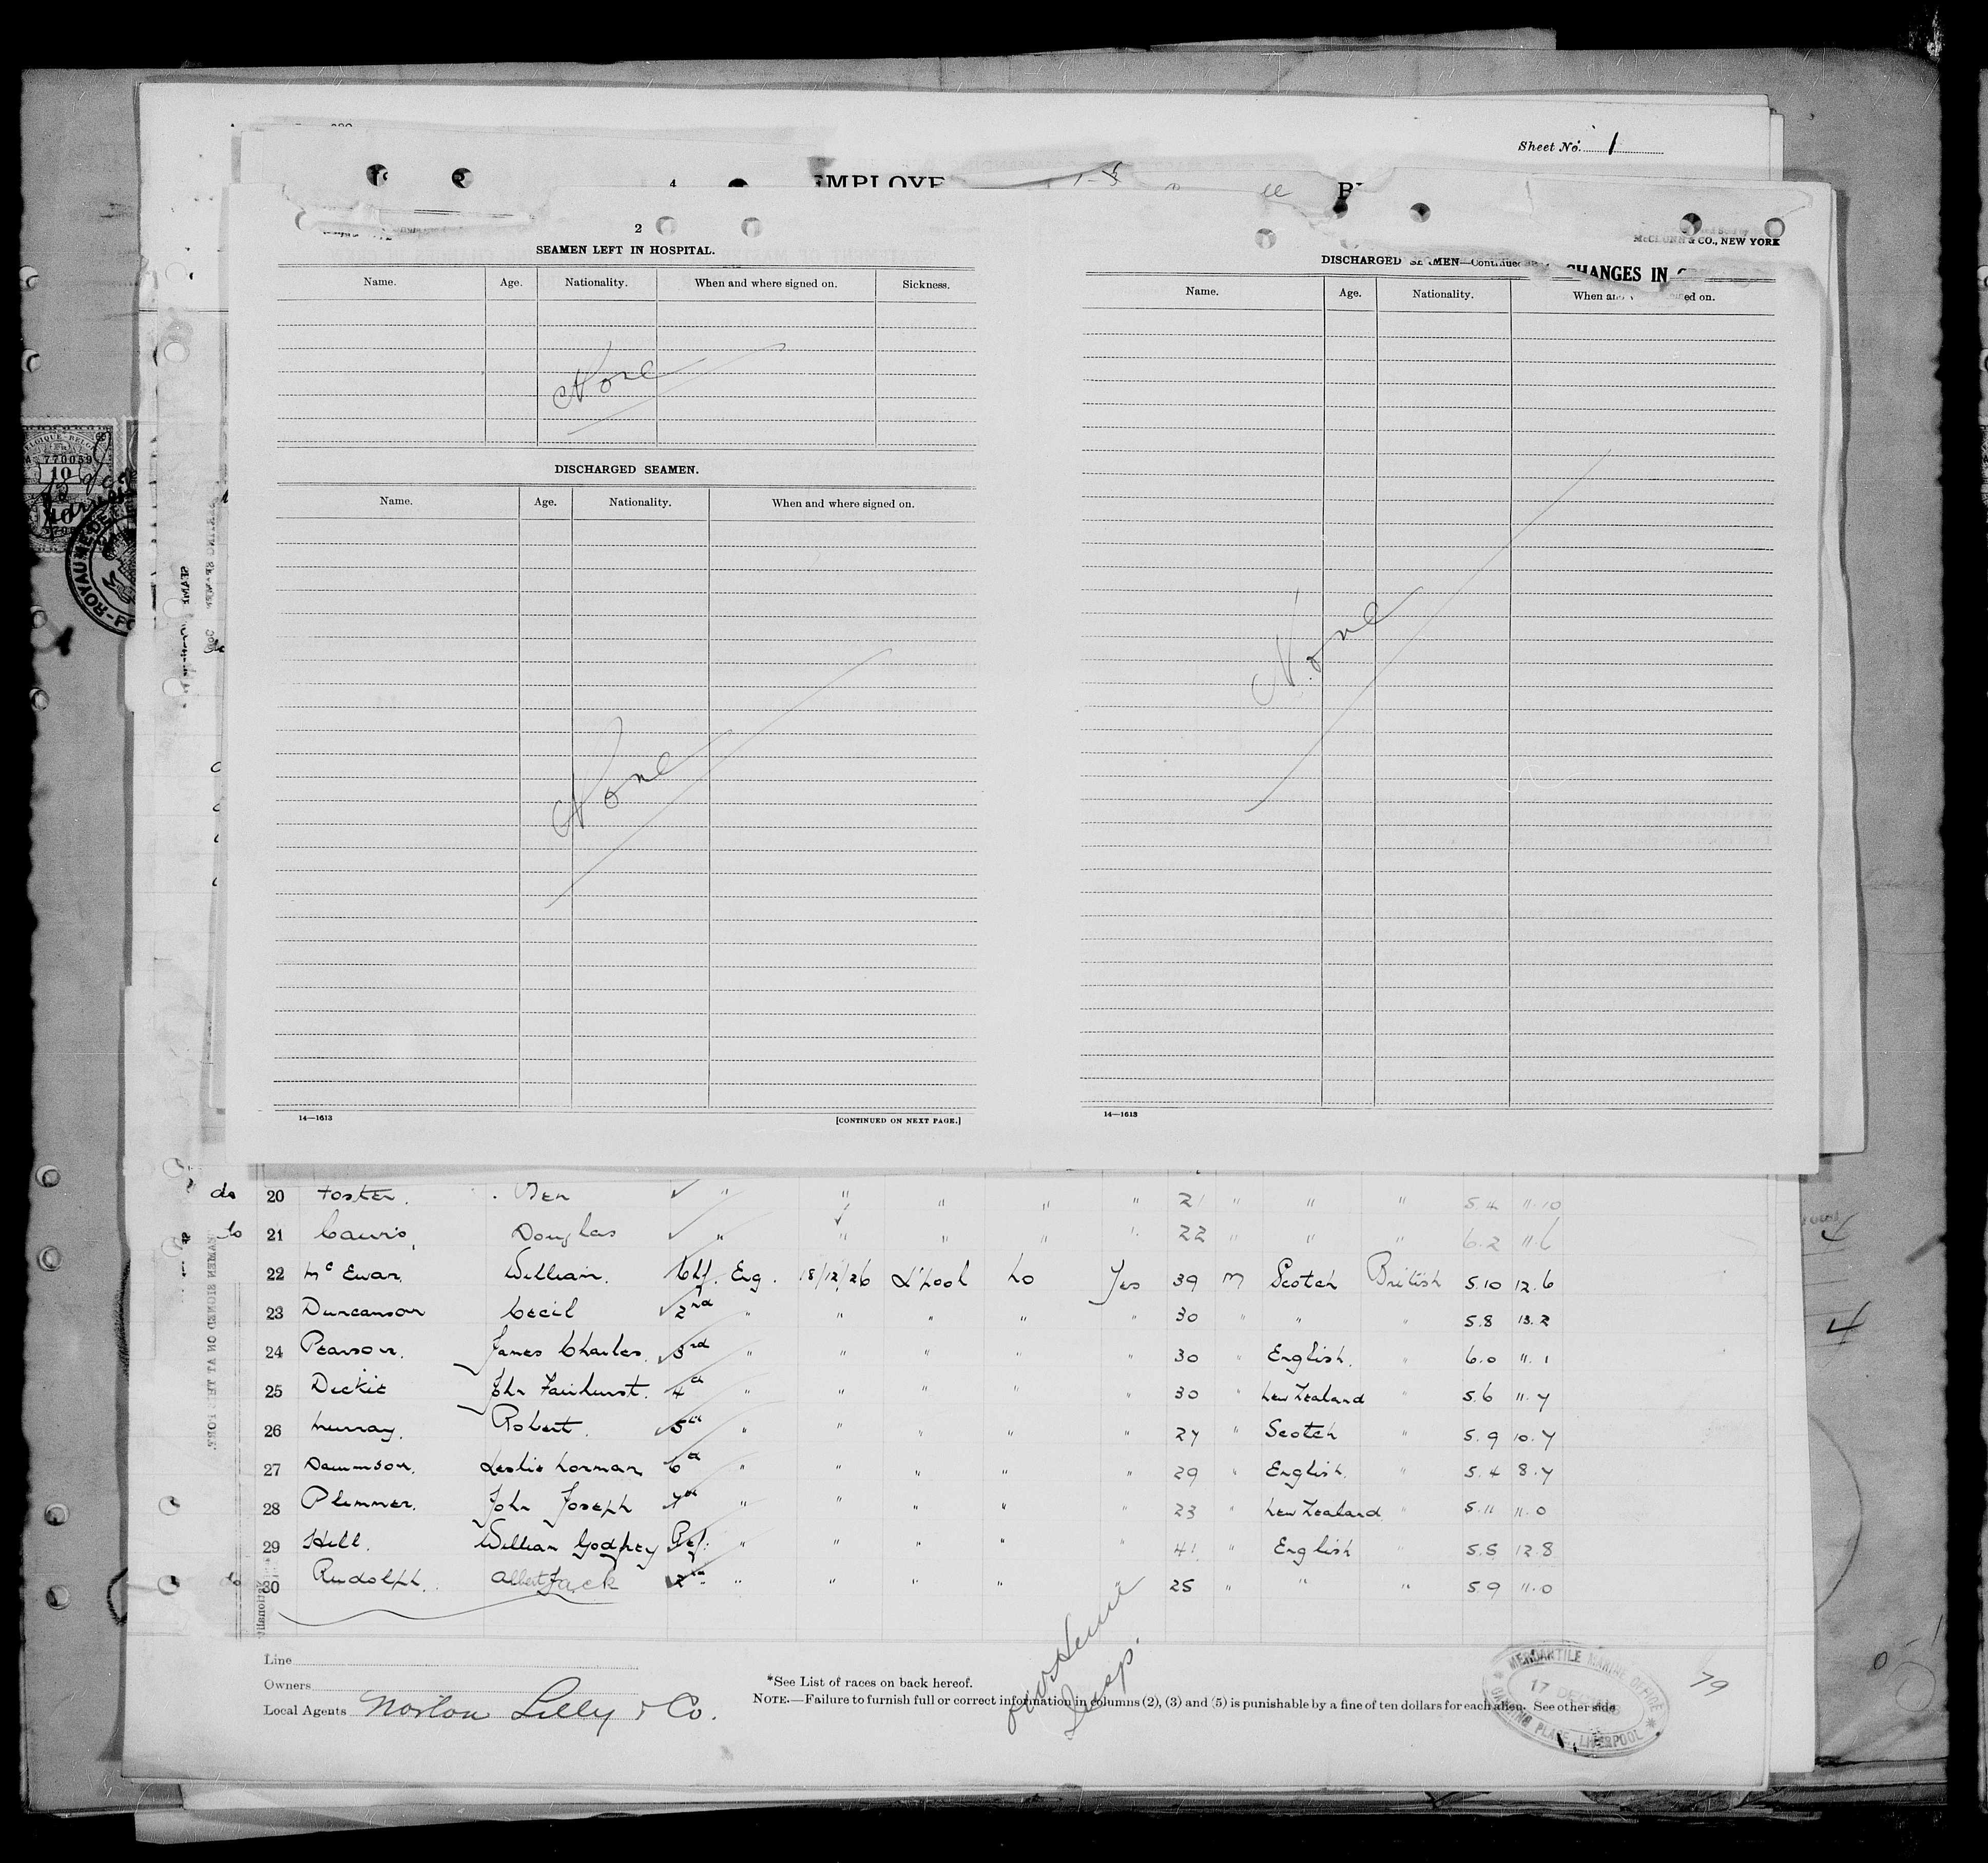 Sheet No. 1
4
EMPLOYE
2
SEAMEN LEFT IN HOSPITAL.
Name. Age. Nationality. When and where signed on. Sickness.
None
DISCHARGED SEAMEN.
Name. Age. Nationality. When and where signed on.
None
14—1613 [CONTINUED ON NEXT PAGE.]
McCLUNN & CO., NEW YORK
DISCHARGED SEAMEN—Continued
CHANGES IN
Name. Age. Nationality. When and ed on.
None
14—1613
770059
10
do 20 Foster. " " " " " 21 " " " 5.4 11.10
do 21 Douglas " " " " " 22 " " " 6.2 11.6
22 McEwan. William. Chf. Eng. 18/12/26 L'pool No Yes 39 M Scotch British 5.10 12.6
23 Duncanson Cecil 2nd " " " " " 30 " " " 5.8 13.2
24 Pearson. James Charles. 3rd " " " " " 30 " English. " 6.0 11.1
25 Deckie John Fairhurst. 4th " " " " " 30 " New Zealand " 5.6 11.7
26 Murray. Robert. 5th " " " " " 27 " Scotch " 5.9 10.7
27 Leslie Norman 6th " " " " " 29 " English. " 5.4 8.7
28 Plimmer. John Joseph 7th " " " " " 23 " New Zealand " 5.11 11.0
29 Hill. William Godfrey Ref. " " " " " 41 " English " 5.5 12.8
do 30 Rudolph. Albert Jack 2nd " " " " 25 " " " 5.9 11.0
Line
Owners
Local Agents Norton Lilly & Co.
*See List of races on back hereof.
NOTE.—Failure to furnish full or correct information in columns (2), (3) and (5) is punishable by a fine of ten dollars for each alien. See other side
Insp.
MERCANTILE MARINE OFFICE
17 DEC
CANNING PLACE, LIVERPOOL
79
4
4